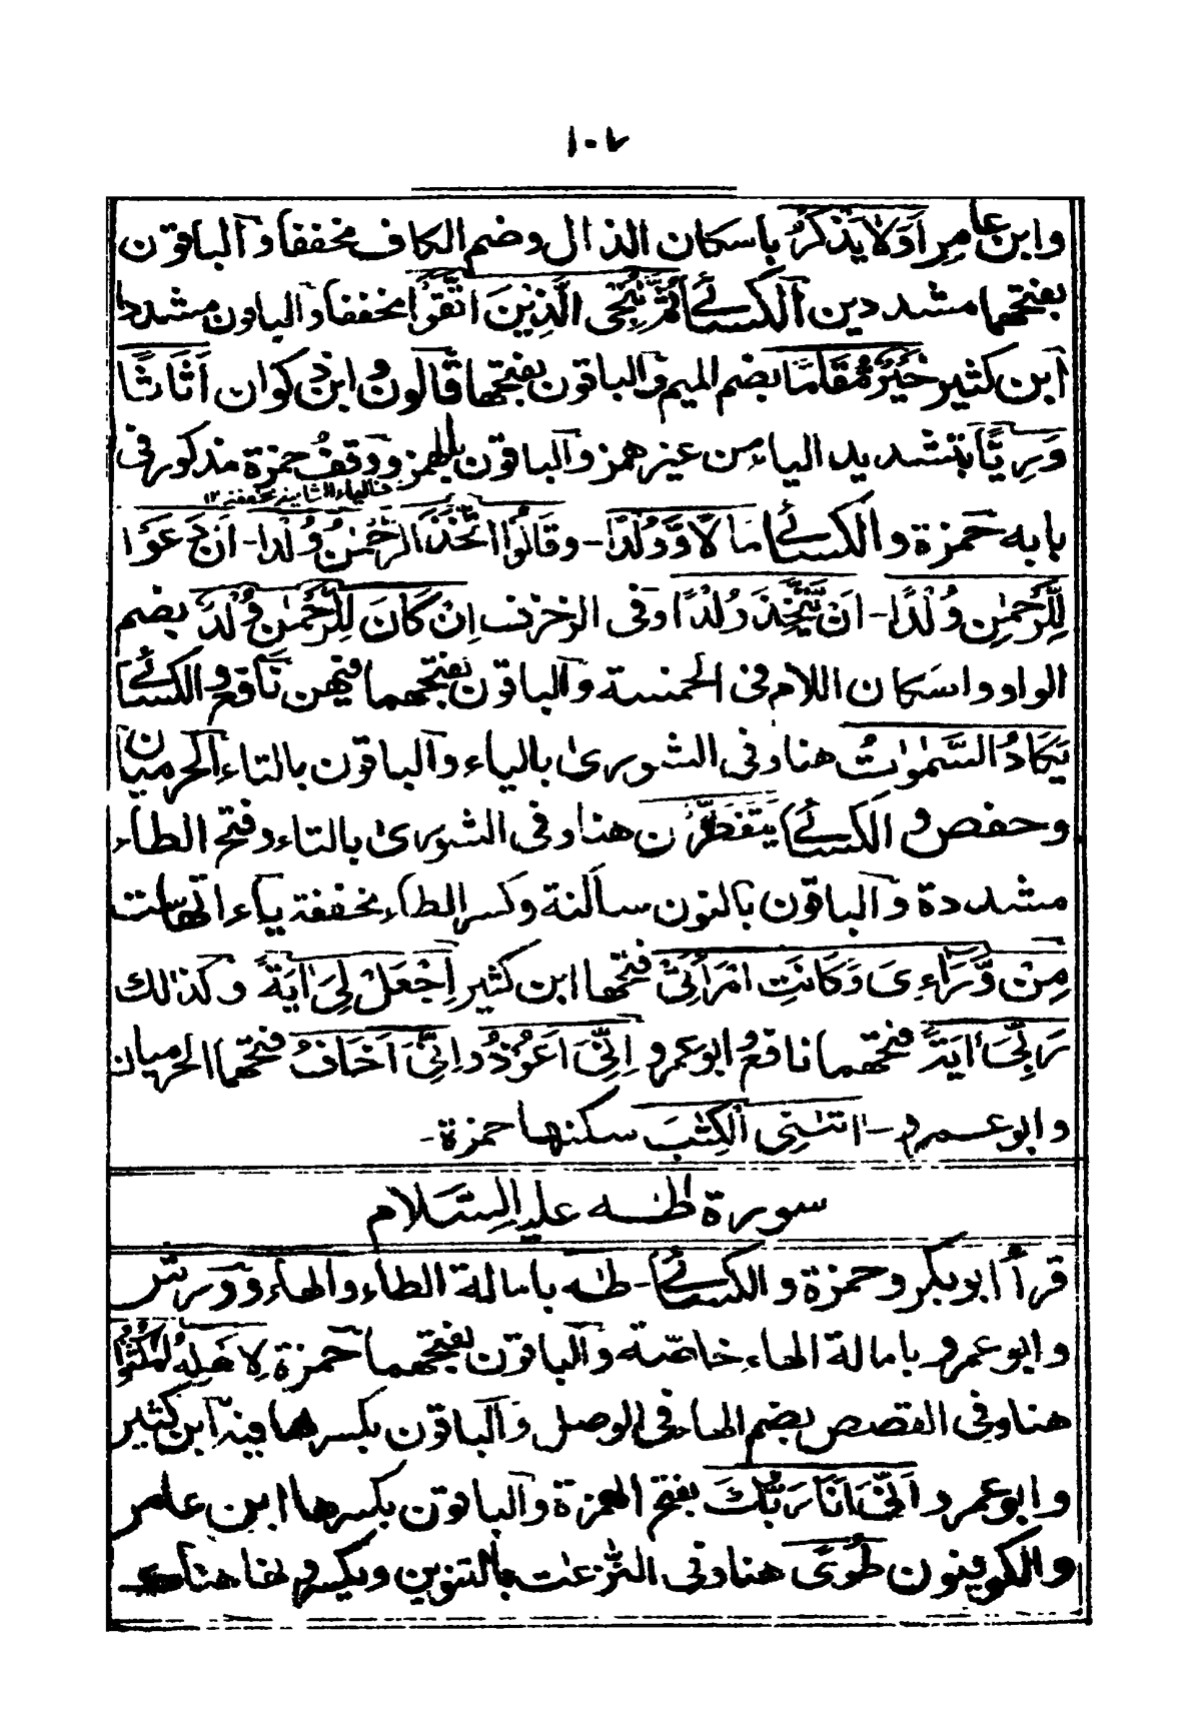 ١٠٧
وابن عامر اَوَلَا يَذْكُرُ باسكان الذال وضم الكاف مخففا والباقون
بفتحهما مشددين الكسائى ثُمَّ نُنْجِى الَّذِيْنَ اتَّقَوْا مخففا والباقون مشددا
ابن كثير خَيْرٌ مُّقَامًا بضم الميم والباقون بفتحها قالون وابن ذكوان اَثَاثًا
وَّرِيًّا بتشديد الياء من غير همز والباقون بالهمز ووقف حمزة مذكور فى
بابه حمزة والكسائى مَالًا وَّوُلْدًا - وقَالُوا اتَّخَذَ الرَّحْمٰنُ وُلْدا - اَنْ دَعَوْا
لِلرَّحْمٰنِ وُلْدًا - اَنْ يَّتَّخِذَ وُلْدًا وفى الزخرف اِنْ كَانَ لِلرَّحْمٰنِ وُلْدٌ بضم
الواو واسكان اللام فى الخمسة والباقون بفتحهما فيهن نافع والكسائى
يَكَادُ السَّمٰوٰتُ هنا وفى الشورىٰ بالياء والباقون بالتاء الحرميان
وحفص والكسائى يَتَفَطَّرْنَ هنا وفى الشورىٰ بالتاء وفتح الطاء
مشددة والباقون بالنون ساكنة وكسر الطاء مخففة ياءاتها ست
مِنْ وَّرَآءِىَ وَكَانَتِ امْرَاَتِىْ فتحها ابن كثير اِجْعَلْ لِىَ اٰيَةً وكذٰلك
رَبِّىَ اٰيَةً فتحهما نافع وابوعمرو اِنِّىَ اَعُوْذُ واِنِّىَ اَخَافُ فتحهما الحرميان
وابوعمرو - اٰتٰنِىَ الْكِتٰبَ سكنها حمزة -
سورة طٰه عليه السَّلام
قرأ ابوبكر وحمزة والكسائى - طٰه بامالة الطاء والهاء وورش
وابوعمرو بامالة الهاء خاصّة والباقون بفتحهما حمزة لِاَهْلِهُ امْكُثُوْا
هنا وفى القصص بضم الهاء فى الوصل والباقون بكسرها فيه ابن كثير
وابوعمرو اَنِّىَ اَنَا رَبُّكَ بفتح الهمزة والباقون بكسرها ابن عامر
والكوفيون طُوًى هنا وفى النّٰزعٰت بالتنوين ويكسرونها هنا